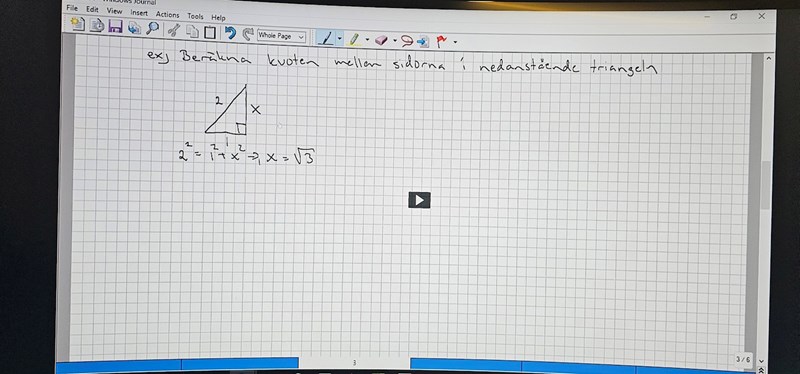 Windows Journal
File Edit View Insert Actions Tools Help
Whole Page
ex) Beräkna kvoten mellan sidorna i nedanstående triangeln
2
x
1
2² = 1² + x² => x = √3
3
3 / 6